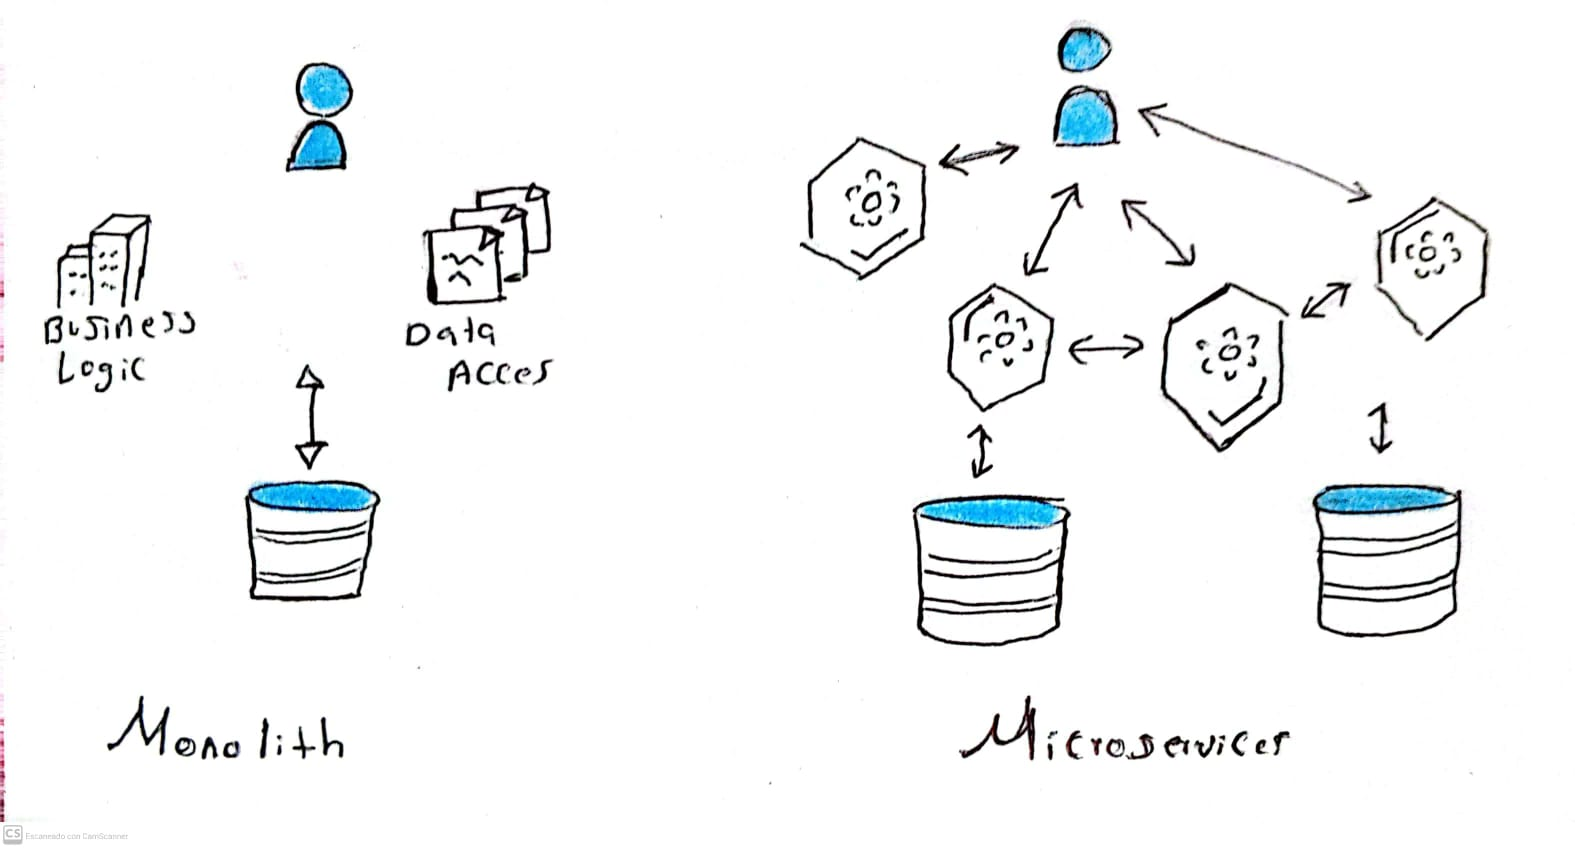 Business
Logic
Data
Acces
Monolith
Microservices
CS Escaneado con CamScanner